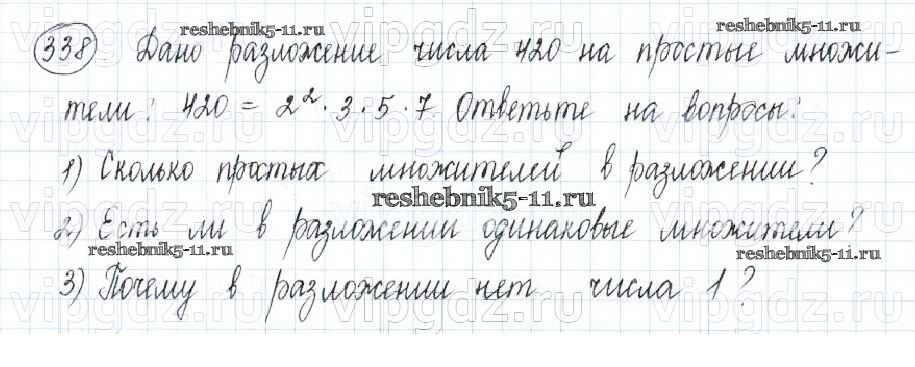 reshebnik5-11.ru
338 Дано разложение числа 420 на простые множи-
тели: 420 = 2² · 3 · 5 · 7 Ответьте на вопросы:
1) Сколько простых множителей в разложении?
reshebnik5-11.ru
2) Есть ли в разложении одинаковые множители?
reshebnik5-11.ru
reshebnik5-11.ru
3) Почему в разложении нет числа 1?
vipgdz.ru